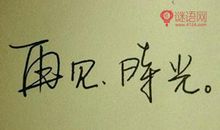 谜语网
www.4124.com
再见、时光。